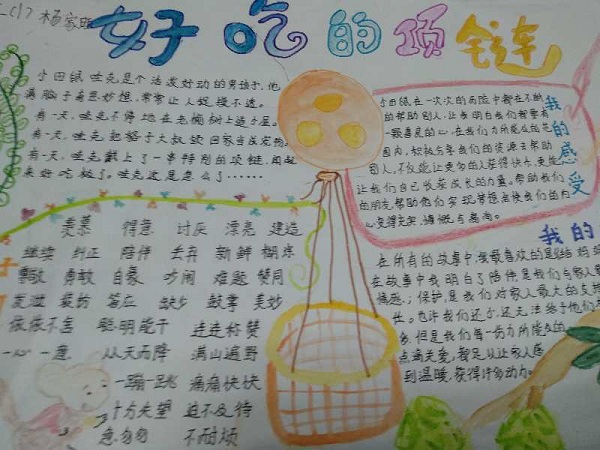 好吃的项链
小田鼠吱克是个活泼好动的男孩子,他
满脑子奇思妙想,常常让人捉摸不透。
有一天,吱克不停地在老橡树上造个屋。
有一天,吱克把骆子大叔领回家当成宠物。
有一天,吱克戴上了一串特别的项链,闻起
来好吃极了。吱克这是怎么了……
我的感受
小田鼠在一次次的历险中都在不断
的帮助别人,让我明白我们都要有
一颗善良的心,在我们力所能及的范
围内,积极去帮助
别人,不仅能让更多的人获得快乐,更能
让我们自己收获成长的力量。帮助我们
的朋友,帮助他们实现梦想
羡慕 得意 讨厌 漂亮 建造
继续 纠正 陪伴 丢弃 新鲜 糊涂
勇敢 自豪 难题 赞同
答应 缺少 鼓掌 美妙
依依不舍 聪明能干 连连称赞
一心一意 从天而降 满山遍野
一蹦一跳 痛痛快快
十分失望 迫不及待
急匆匆 不耐烦
我的
在所有的故事中,我最喜欢的是
在故事中我明白了陪伴是我们与家人
情感;保护是我们对家人最大的支持
长。也许我们还小,还无法给予他们
多,但是我们每一份力所能及的
点滴关爱,都足以让家人感
到温暖,获得许多动力。